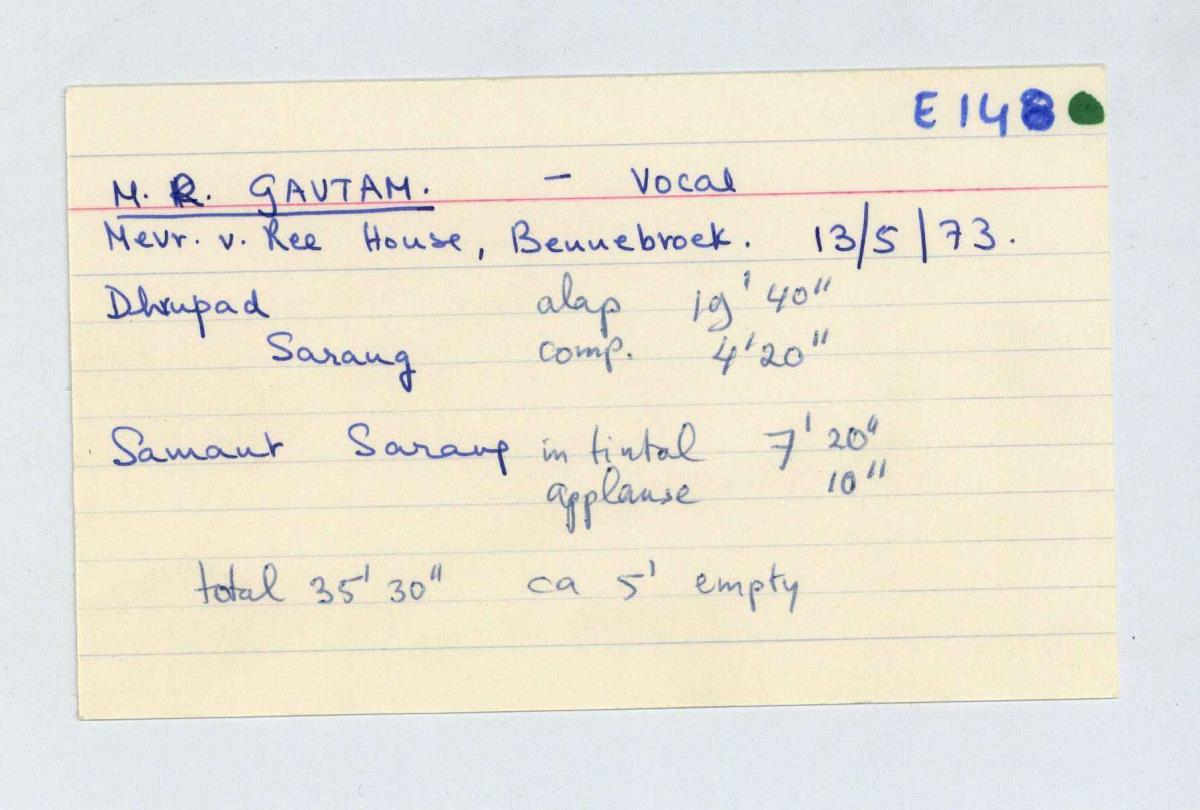 E 148
M. R. GAUTAM. - Vocal
Mevr. v. Ree House, Bennebroek. 13/5/73.
Dhrupad alap 19' 40"
Sarang comp. 4' 20"
Samant Sarang in tintal 7' 20"
applause 10"
total 35' 30" ca 5' empty